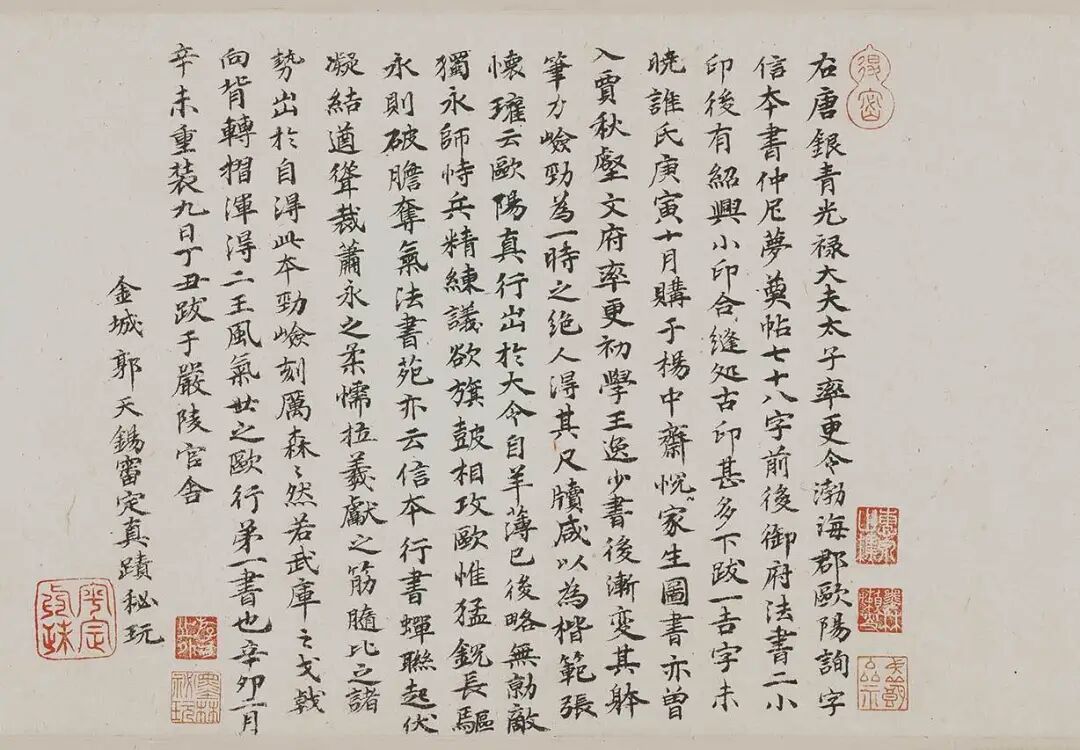 右唐銀青光禄大夫太子率更令渤海郡歐陽詢字
信本書仲尼夢奠帖七十八字前後御府法書二小
印後有紹興小印合縫处古印甚多下跋一吉字未
曉誰氏庚寅十月購于楊中齋悦家生圖書亦曾
入賈秋壑文府率更初學王逸少書後漸變其躰
筆力嶮勁為一時之絶人得其尺牘咸以為楷範張
懷瓘云歐陽真行出於大令自羊薄已後略無勍敵
獨永師恃兵精練議欲旗鼓相攻歐惟猛鋭長驅
永則破膽奪氣法書苑亦云信本行書蟬聯起伏
凝結遒聳裁蕭永之柔懦拉羲獻之筋髓比之諸
勢出於自得此本勁嶮刻厲森〻然若武庫之戈戟
向背轉摺渾得二王風氣世之歐行第一書也辛卯二月
辛未重装九日丁丑跋于嚴陵官舎
金城郭天錫審定真蹟秘玩
墨林秘玩
平定